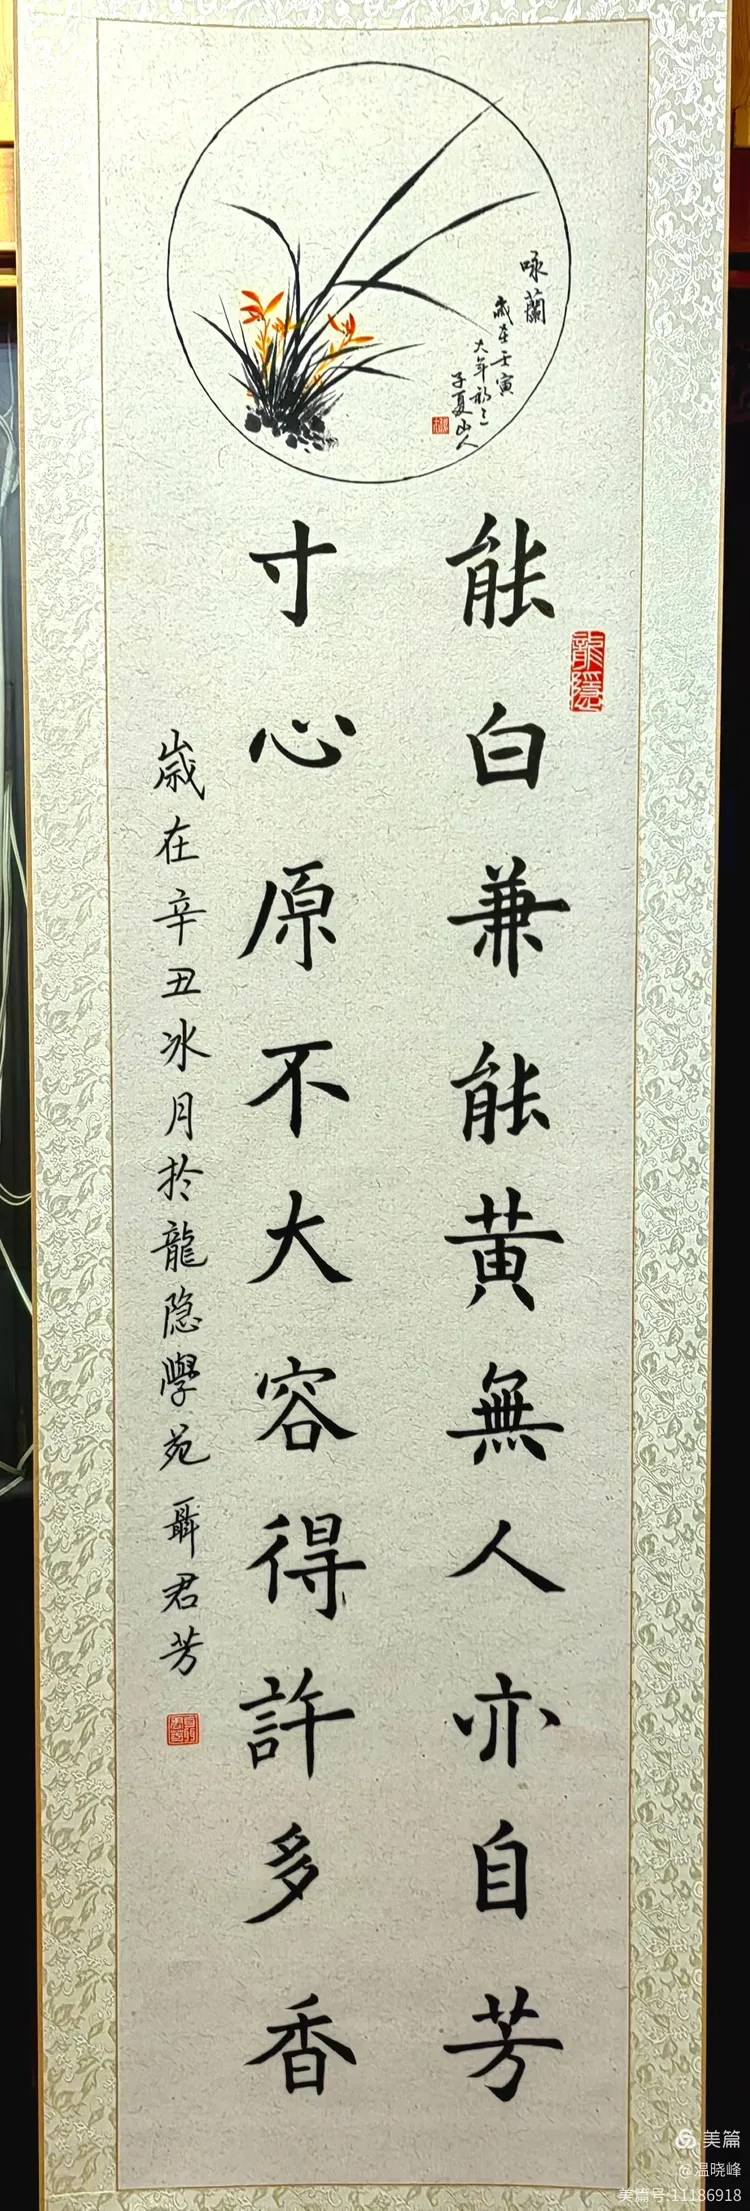 咏蘭
歲在壬寅
大年初三
子夏山人
能白兼能黄無人亦自芳
寸心原不大容得許多香
歲在辛丑冰月於龍隐學苑 聶君芳
龍隱
美篇
@温晓峰
美篇号:11186918